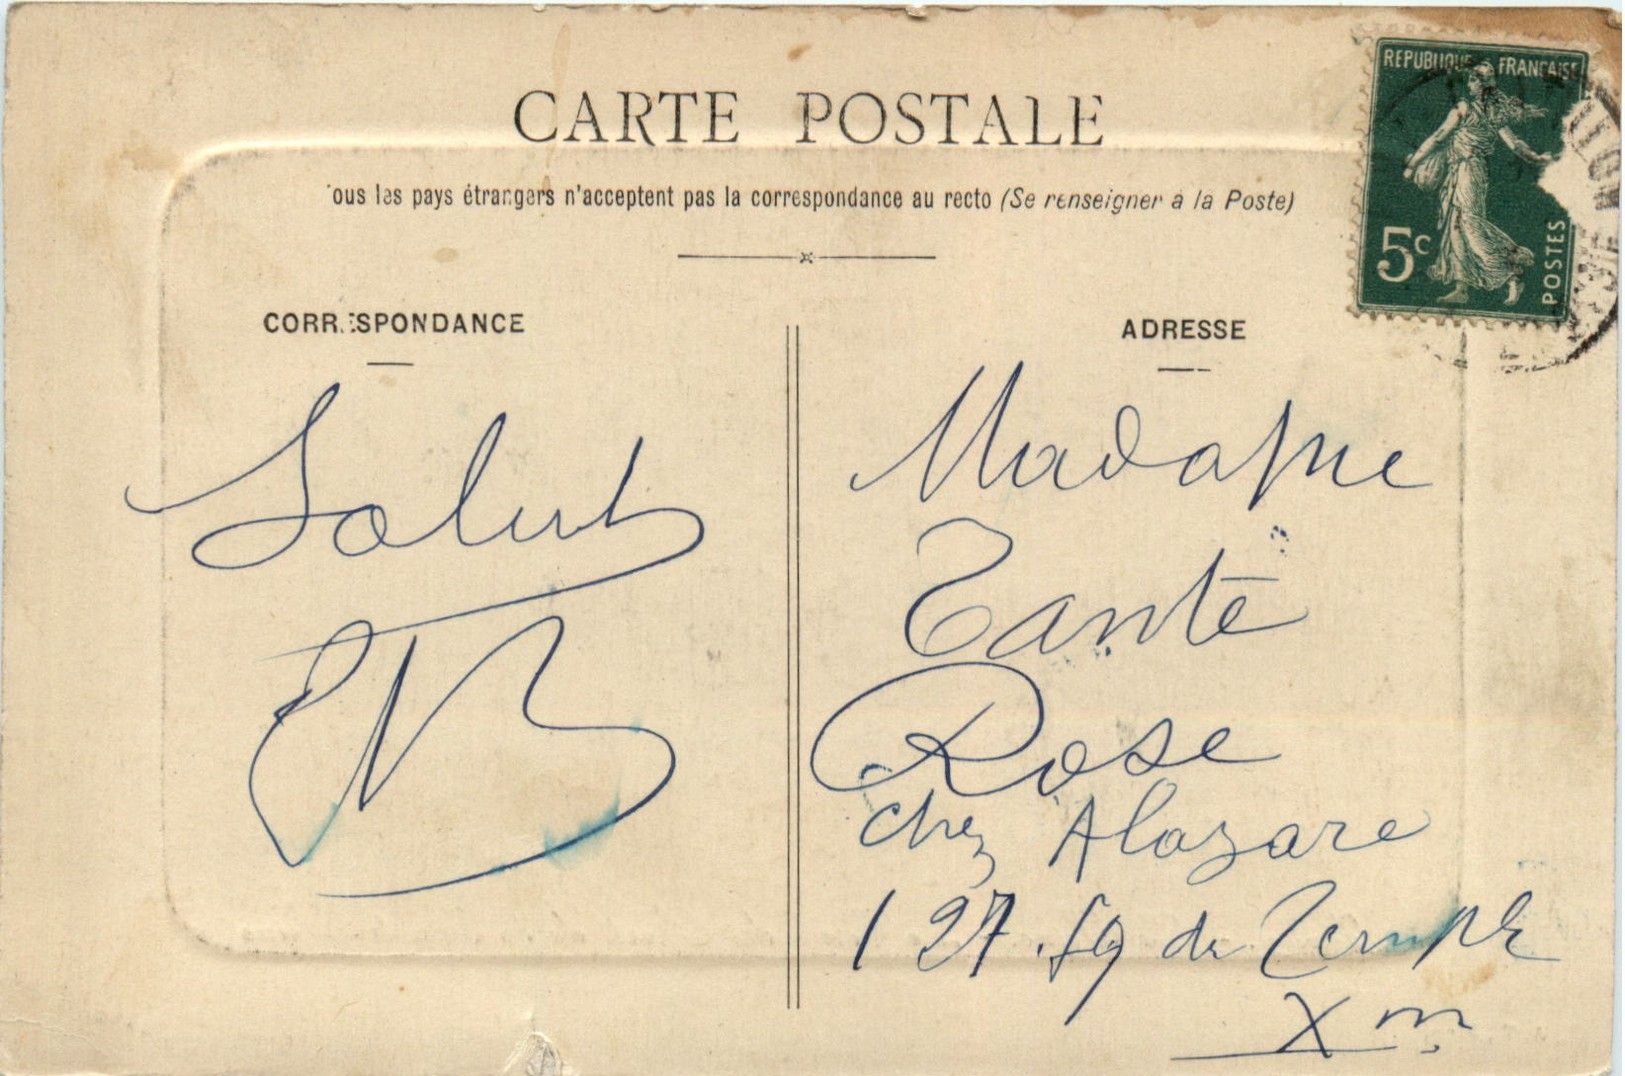 CARTE POSTALE
ous les pays étrangers n'acceptent pas la correspondance au recto (Se renseigner à la Poste)
REPUBLIQUE FRANÇAISE
5c
POSTES
CORRESPONDANCE
Salut
ADRESSE
Madame
Tante
Rose
chez Alazare
127 . fg du Temple
Xm